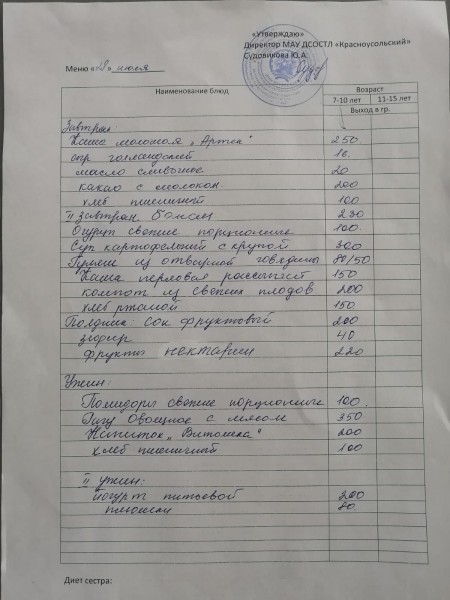 «Утверждаю»
Директор МАУ ДСОСТЛ «Красноусольский»
Судовикова Ю.А.
Меню «28» июля
Наименование блюд Возраст
7-10 лет 11-15 лет
Выход в гр.
Завтрак
Каша молочная „Артек" 250
сыр голландский 16
масло сливочное 20
какао с молоком. 200
хлеб пшеничный 100
II Завтрак бонан 230
Огурцы свежие порционные 100.
Суп картофельный с крупой 300
Гуляш из отварной говядины 80/50
Каша перловая рассыпчат 150
компот из свежих плодов 200
хлеб ржаной 150
Полдник: сок фруктовый 200
зефир 40
фрукты нектарин 220
Ужин:
Помидоры свежие порционные 100.
Рагу Овощное с мясом 350
Напиток „Витошка" 200
хлеб пшеничный 100
II ужин:
йогурт питьевой 200
плюшки 80.
Диет сестра: